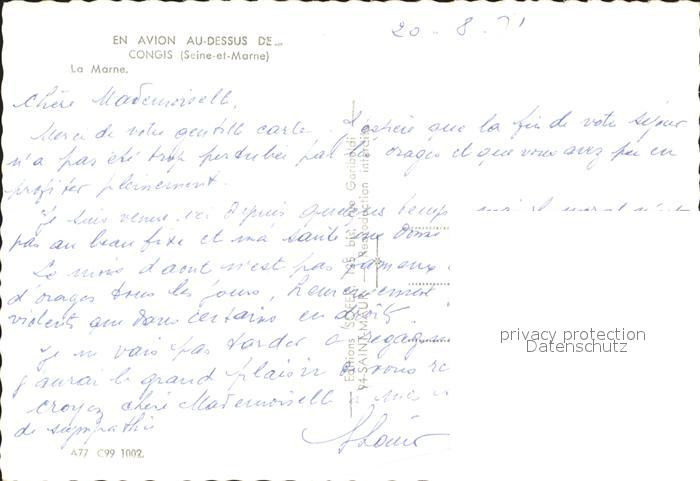 20 - 8. 71
EN AVION AU-DESSUS DE...
CONGIS (Seine-et-Marne)
La Marne.
Chère Mademoiselle,
Merci de votre gentille carte. J'espère que la fin de votre séjour
n'a pas été trop perturbée par les orages et que vous avez pu en
profiter pleinement.
Je suis venue ici depuis quelques temps
pas au beau fixe et ma santé me
Le mois d'août n'est pas fameux
d'orages tous les jours, heureusement
violents que dans certains endroits.
Je ne vais pas tarder à
j'aurai le grand plaisir de vous
Croyez chère Mademoiselle à mes
de sympathie
Editions SOFER - 195 bis, rue Garibaldi
94-SAINT-MAUR - Reproduction interdite
privacy protection
Datenschutz
A77 C99 1002.